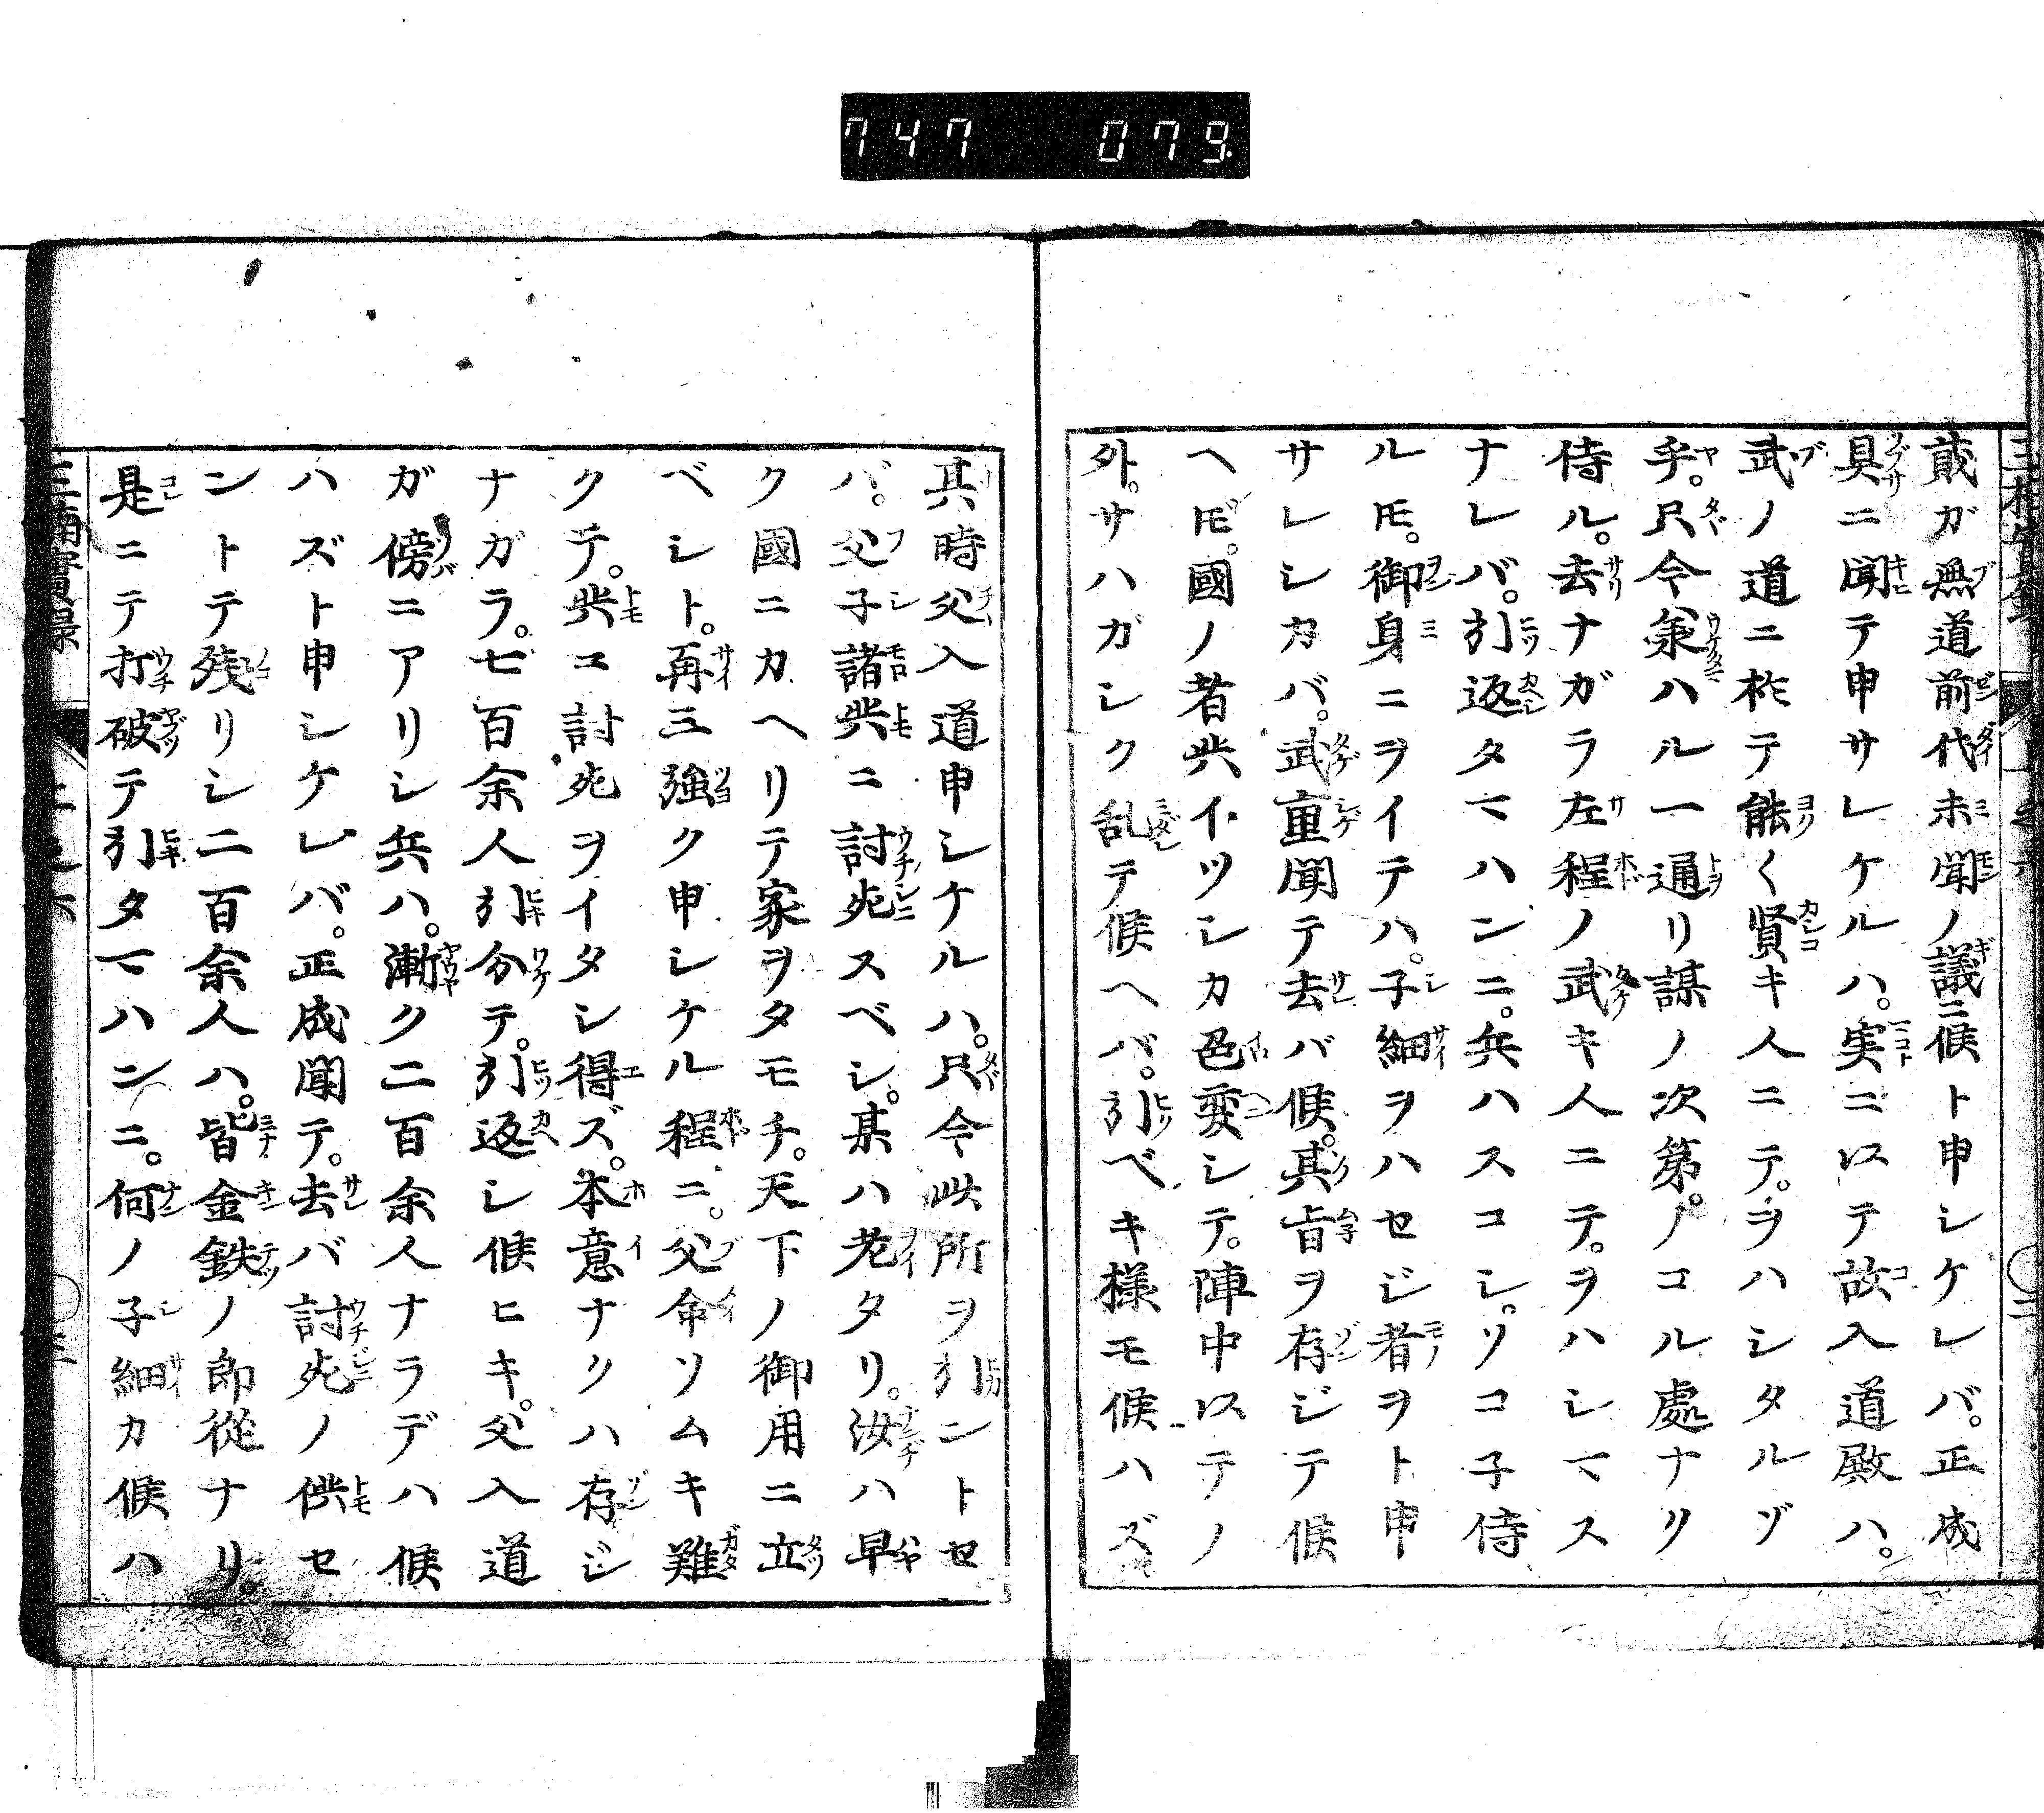 747 079
蕺ガ無道前代未聞ノ議ニ候ト申シケレバ。正成
具ニ聞テ申サレケルハ。実ニ以テ故入道殿ハ。
武ノ道ニ於テ能く賢キ人ニテ。ヲハシタルヅ
乎。只今承ハル一通リ謀ノ次第。ノコル處ナク
侍ル。去ナガラ左程ノ武キ人ニテ。ヲハシマス
ナレバ。引返タマハンニ。兵ハスコシ。ソコ子侍
ルモ。御身ニヲイテハ。子細ヲハセジ者ヲト申
サレシカバ。武重聞テ去バ候。其旨ヲ存ジテ候
ヘ𪜈。國ノ者共イツシカ色変シテ。陣中以テノ
外。サハガシク乱テ候ヘバ。引ベキ様モ候ハズ
其時父入道申シケルハ。只今此所ヲ引ントセ
バ。父子諸共ニ討死スベシ。某ハ老タリ。汝ハ早
ク國ニカヘリテ家ヲタモチ。天下ノ御用ニ立
ベシト。再三強ク申シケル程ニ。父命ソムキ難
クテ。共コ討死ヲイタシ得ズ。本意ナクハ存ジ
ナガラ。七百余人引分テ。引返シ候ヒキ。父入道
ガ傍ニアリシ兵ハ。漸ク二百余人ナラデハ候
ハズト申シケレバ。正成聞テ。去バ討死ノ供セ
ントテ残リシ二百余人ハ。皆金鉄ノ郎従ナリ。
是ニテ打破テ引タマハンニ。何ノ子細カ候ハ